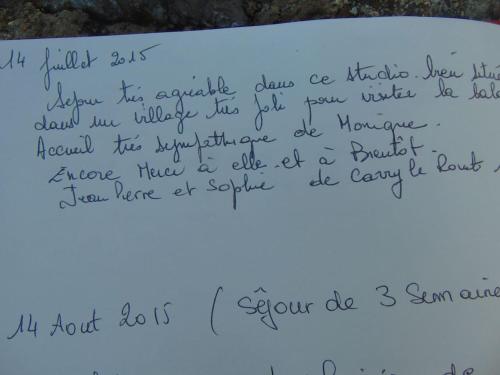 14 Juillet 2015
Sejour très agréable dans ce studio bien situé
dans un village très joli pour visiter la
Accueil très sympathique de Monique.
Encore Merci à elle et à Bientot.
Jean Pierre et Sophie de Carry le Rouet
14 Aout 2015 ( Séjour de 3 Semaine
de